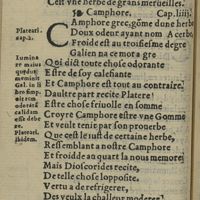 C'est vne herbe de grans merueilles.
Camphore. Cap. liiij.
CAmphore gree, gõme dune herbe
Doux odeur ayant nom A cerbo
Froide est au troisiesme degre
Galien na ce mora gre
Qui dict toute chose odorante
Estre de soy calefiante
Et Camphore est tout au contraire,
Daultre part recite Platere:
Estre chose friuolle en somme
Croyre Camphore estre vne Gomme
Et veult tenir par son prouerbe
Que cest le iust de certaine herbe,
Ressemblant a nostre Camphore
Et froidde an quart la nous memore:
Mais Dioscorides recite,
De telle chose loppositte.
Vertu a de refrigerer,
Des yeulx la challeur moderer
Plateari.
cap.2.
ra maius
quedum
meminit
Gal. in li
bro simp.
est.
Plateari.
ibidem.